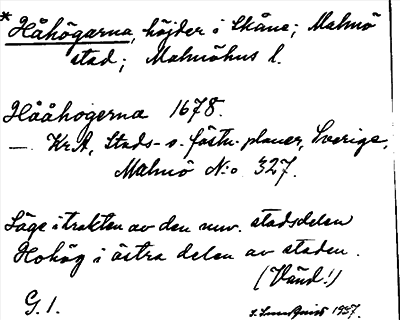 * Håhögarna, höjder i Skåne; Malmö
stad; Malmöhus l.
Hååhogerna 1678.
— KrA, Stads- o. fästn. planer, Sverige,
Malmö N:o 327.
Läge i trakten av den nuv. stadsdelen
Hohög i östra delen av staden.
(Vänd!)
G. 1.
1937.